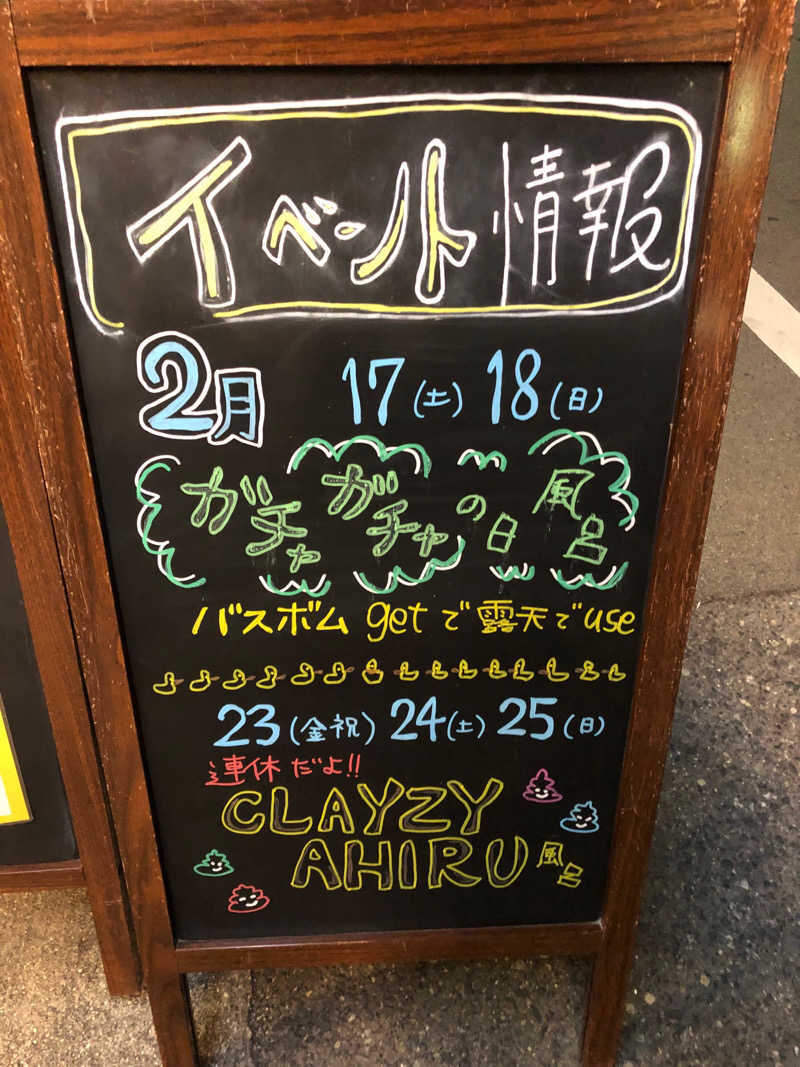 イベント情報
2月 17(土) 18(日)
ガチャガチャの日風呂
バスボム getで露天でuse
23(金祝) 24(土) 25(日)
連休だよ!!
CLAYZY
AHIRU風呂